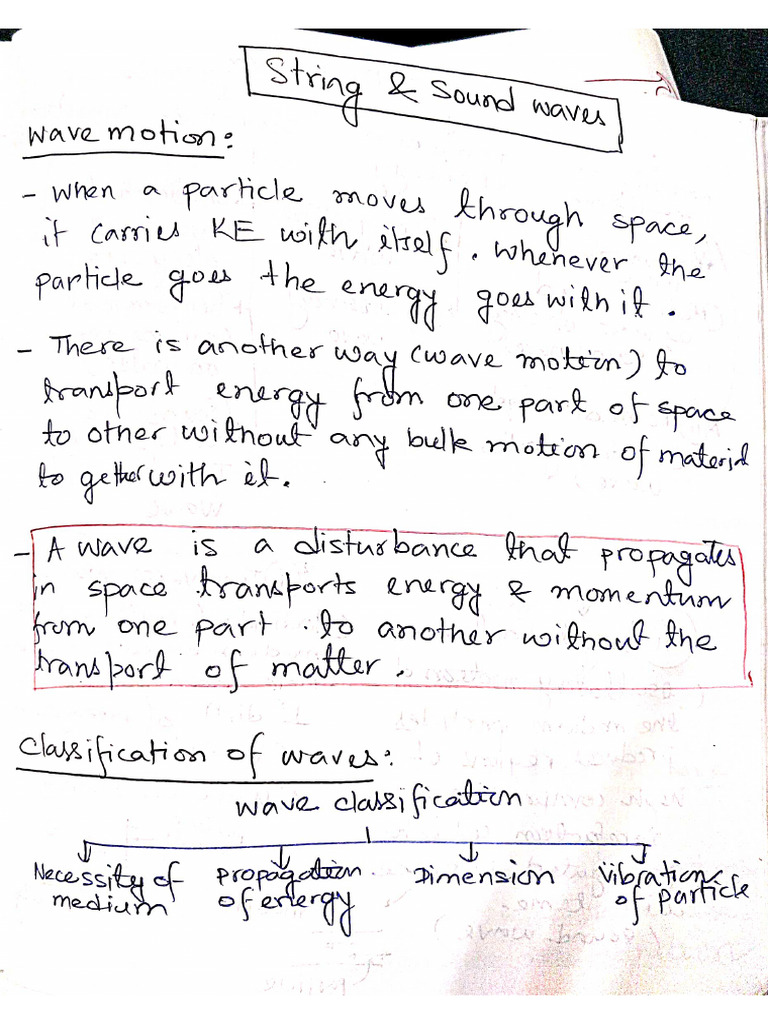 String & Sound waves
Wave motion:
- When a particle moves through space,
it carries KE with itself. Whenever the
particle goes the energy goes with it.
- There is another way (wave motion) to
transport energy from one part of space
to other without any bulk motion of material
to gether with it.
- A wave is a disturbance that propagates
in space transports energy & momentum
from one part to another without the
transport of matter.
Classification of waves:
Wave classification
Necessity of medium
Propagation of energy
Dimension
Vibrations of particle